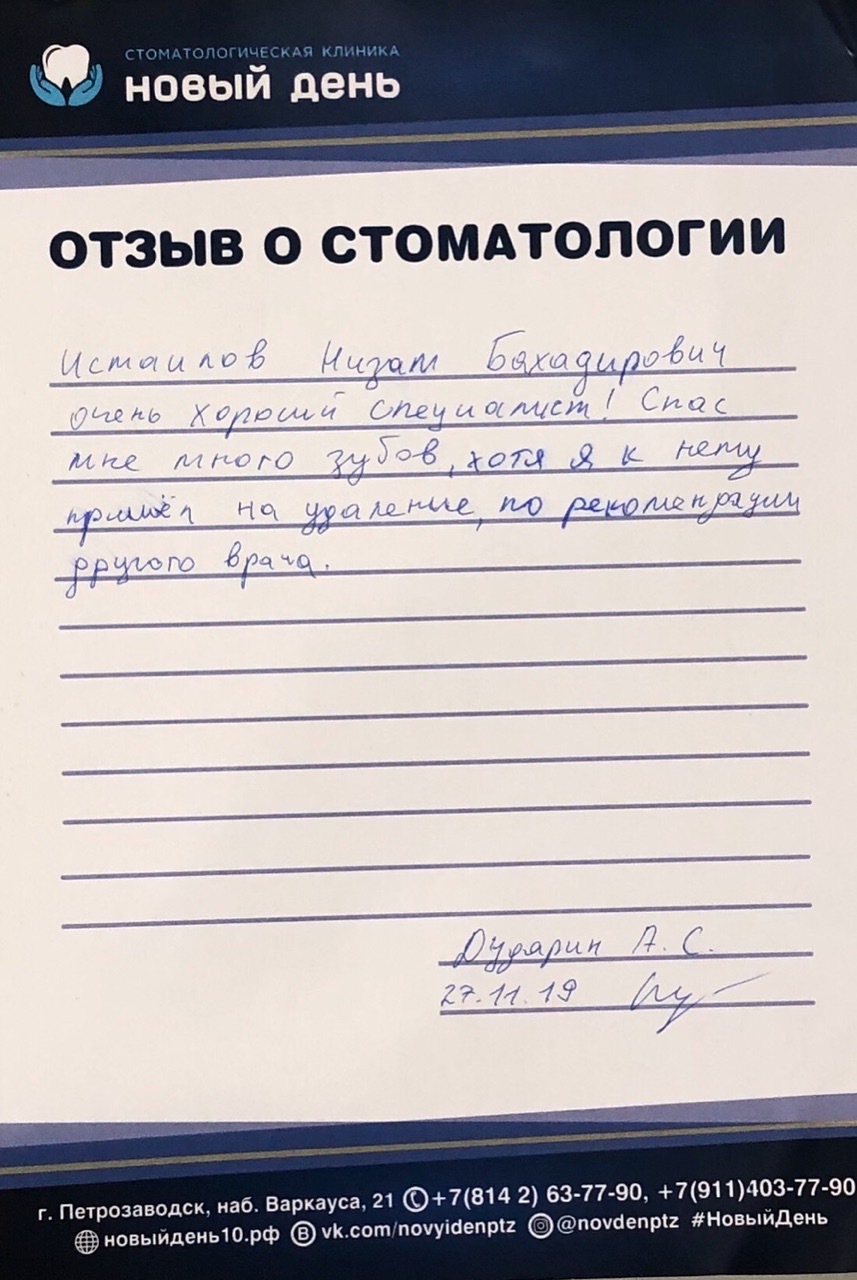 СТОМАТОЛОГИЧЕСКАЯ КЛИНИКА
НОВЫЙ ДЕНЬ
ОТЗЫВ О СТОМАТОЛОГИИ
Исмаилов Низам Бахадирович
очень хороший специалист! Спас
мне много зубов, хотя я к нему
пришёл на удаление, по рекомендации
другого врача.
Дударин А. С.
27.11.19
г. Петрозаводск, наб. Варкауса, 21 +7(814 2) 63-77-90, +7(911)403-77-90
новыйдень10.рф vk.com/novyidenptz @novdenptz #НовыйДень